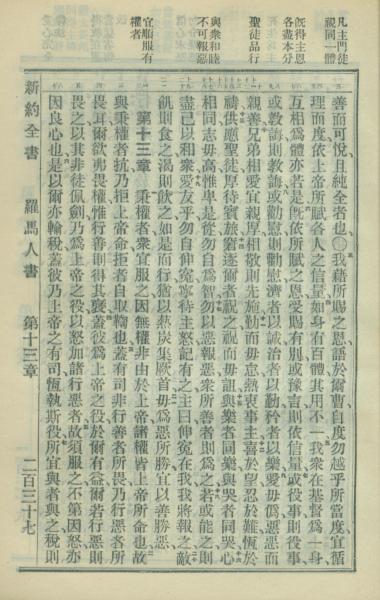 凡主門徒
視同一體
旣得主恩
各盡本分
聖徒品行
與衆和睦
不可報惡
宜順服有
權者
善而可悅且純全者也○我藉所賜之恩語於爾曹自度勿越乎所當度宜循
理而度依上帝所賦各人之信量如身有百體其用不一我衆在基督爲一身
互相爲體亦若是旣依所賦之恩受賜有別或豫言則依信量或役事則役事
或敎誨則敎誨或勸慰則勸慰濟者以誠治者以勤矜者以樂愛毋僞惡惡而
親善兄弟相愛宜親厚相敬則先施勤而毋怠熱衷事主喜於望忍於難恆於
禱供應聖徒厚待賓旅窘逐爾者祝之祝而毋詛與樂者同樂與哭者同哭心
相同志毋高惟卑是從勿自爲智勿以惡報惡衆所善者則爲之若或能之則
盡己以和衆愛友乎勿自伸寃寧待主怒記有之主曰伸寃在我我將報之敵
飢則食之渴則飲之如是而行猶以熱炭集厥首毋爲惡所勝宜以善勝惡
第十三章 秉權者衆宜服之因無權非由於上帝諸權皆上帝所命也故
與秉權者抗乃拒上帝命拒者自取鞫也蓋有司非行善者所畏乃行惡者所
畏耳爾欲弗畏權惟行善則得其褒蓋彼爲上帝之役於爾有益爾若行惡則
畏之以其非徒佩劍乃爲上帝之役以怒加諸行惡者故須服之不第因怒亦
因良心也是以爾亦輸稅蓋彼乃上帝之有司恆執斯役所宜與者與之稅則
新約全書 羅馬人書 第十三章 二百三十七